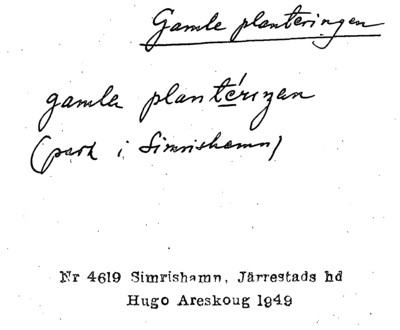 Gamle planteringen
gamla plantérıŋen
(park i Simrishamn)
Nr 4619 Simrishamn, Järrestads hd
Hugo Areskoug 1949